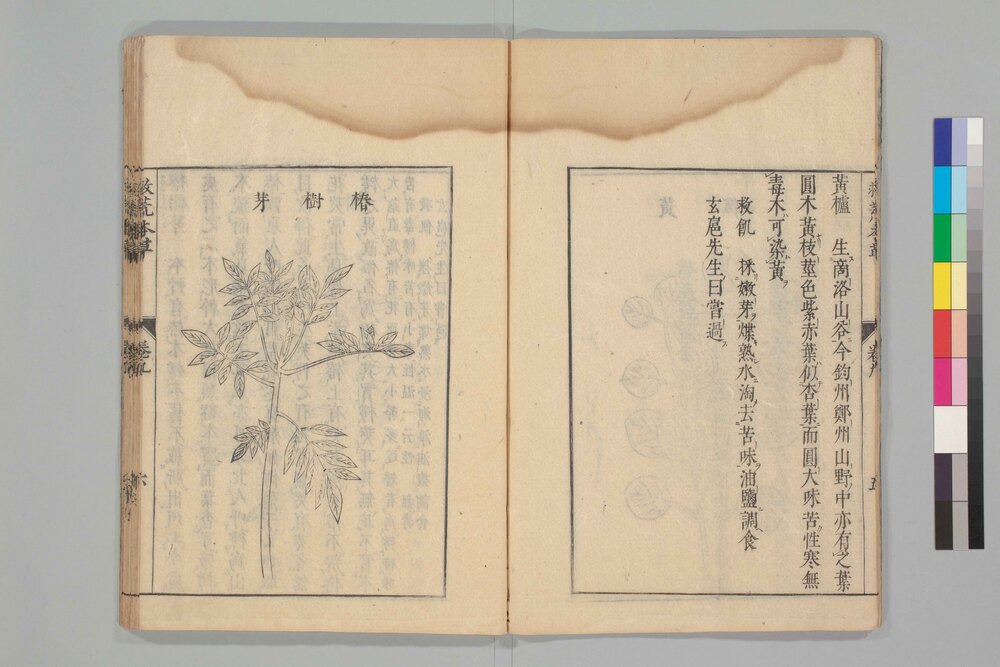 黃櫨 生商洛山谷今鈞州鄭州山野中亦有之葉
圓木黃枝莖色紫赤葉似杏葉而圓大味苦性寒無
毒木可染黃
救飢 採嫩芽煠熟水淘去苦味油鹽調食
玄扈先生曰嘗過
椿樹芽
救荒本草
卷九
六